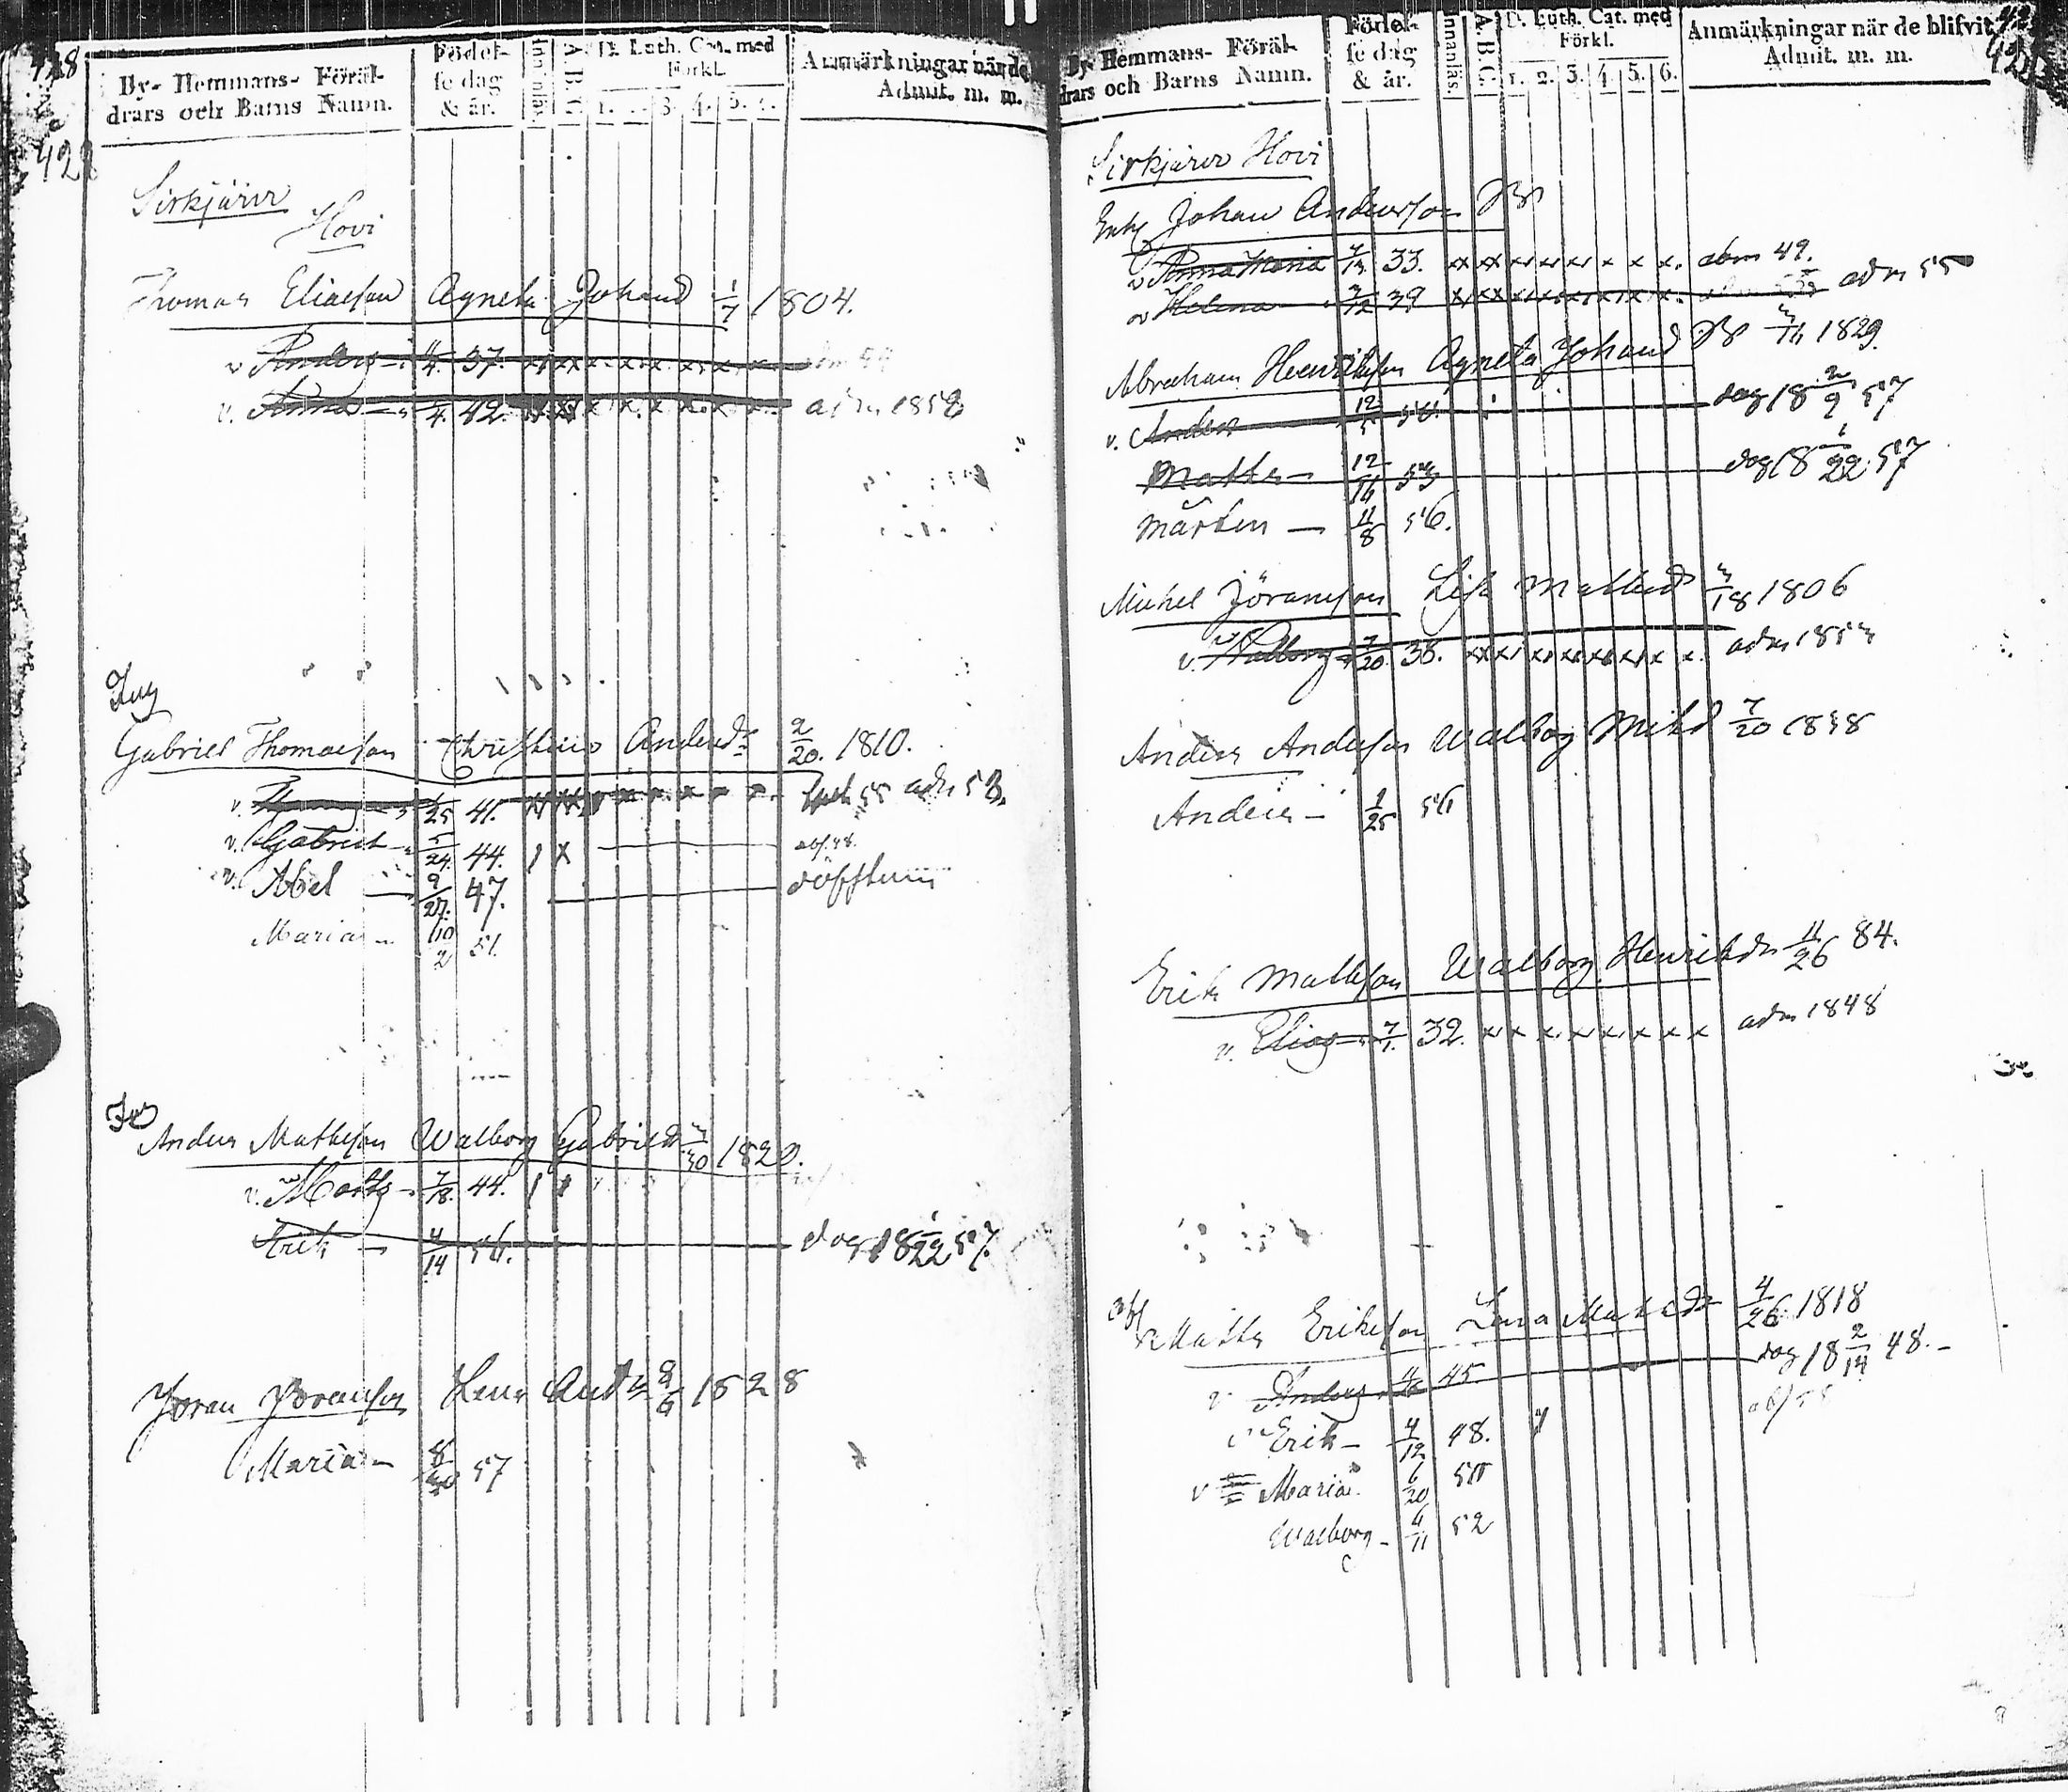 428
428
By- Hemmans- Föräl-
drars och Barns Namn.
Födel-
se dag
& år.
Innanläs.
A. B. C.
D. Luth. Cat. med
Förkl.
1. 3. 4. 5.
Anmärkningar när de
Admit. m. m.
Sirkjärvi
Hovi
Thomas Eliasson Agneta Johansd 1/7 1804.
v Anders 4. 37. x x x x x x x
v. Anna 4. 42. x x x x x x x adm 1858
Gabriel Thomasson Christina Andersdr 2/20. 1810.
v. /25 41. adm 58.
v. Gabriel 5/24. 44. 1 x
v. Abel 9/27. 47. döfstum
Maria 10/2 51.
Anders Mattsson Walborg Gabrielsd /30 1820.
v. Matts 7/18. 44. 1
Erik 4/14 56. dog 18 1/22 57.
Jöran Jöransson Lena And 1828
Maria 57
By- Hemmans- Föräl-
drars och Barns Namn.
Födel-
se dag
& år.
Innanläs.
A. B. C.
D. Luth. Cat. med
Förkl.
1. 2. 3. 4. 5. 6.
Anmärkningar när de blifvit
Admit. m. m.
Sirkjärvi Hovi
Enk Johan Andersson
v Anna Maria 33. xx xx x x x x x x. adm 49.
v Helena /12 39 x x x x x x x x. adm 55
Abraham Henriksson Agneta Johansd 1829.
v. Anders 12/5 dog 18 2/9 57
Matts 12/16 53 dog 18 1/22 57
Mårten 11/8 56.
Michel Jöransson Lisa Mattsd /18 1806
v. Walborg 7/20. 38. xx x x x x x x x. adm 185
Anders Andersson Walborg Mikd 7/20 1838
Anders 1/25 56
Erik Mattsson Walborg Henriksdr 11/26 84.
v. Elias 7/1. 32. x x x x x x x x adm 1848
Matts Eriksson Lena Matsdr 4/26. 1818
v Anders 45 dog 18 2/14 48.
v Erik 4/12 48.
v Maria 6/20 50
Walborg 4/11 52